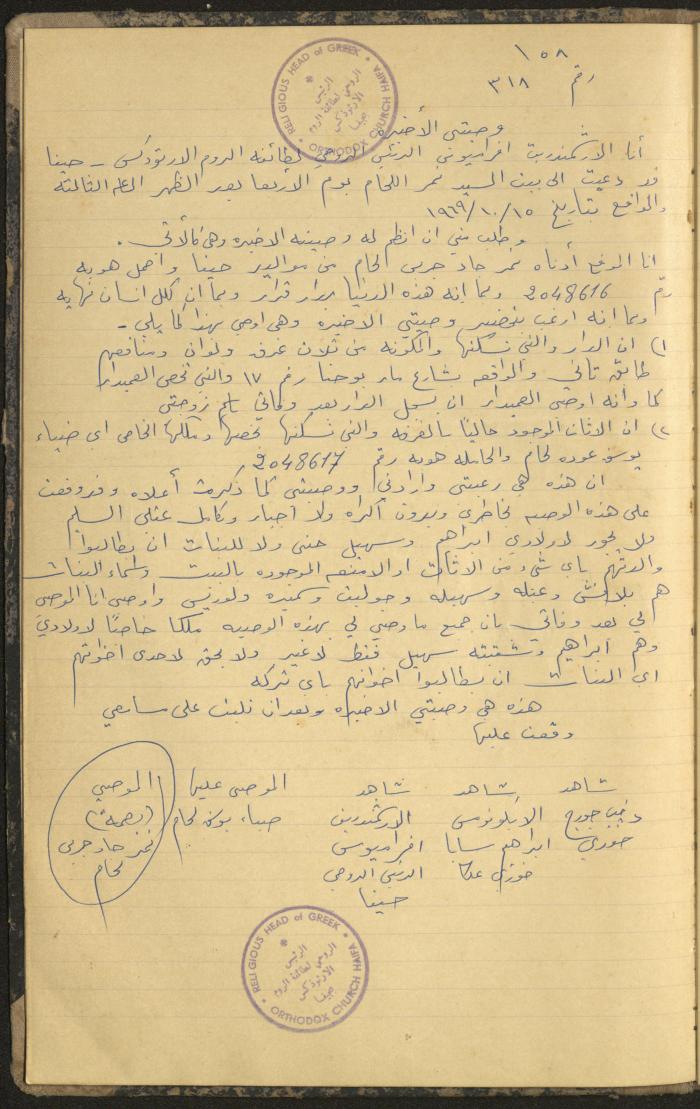 ١٥٨
رقم ٣١٨
RELIGIOUS HEAD of GREEK ORTHODOX CHURCH HAIFA
الرئيس
الروحي لطائفة الروم
الارثوذكس
حيفا
وصيتي الأخيرة
أنا الارشمندريت افراميوس الرئيس الروحي لطائفة الروم الارثوذكس - حيفا
قد دعيت الى بيت السيد نمر اللحام يوم الأربعا بعد الظهر الساعه الثالثة
والواقع بتاريخ ١٥/١٠/١٩٦٩
وطلب مني ان انظم له وصيته الاخيره وهي كالأتي .
انا الموقع أدناه نمر جاد حربي لحام من مواليد حيفا واحمل هويه
رقم 2048616 وبما انه هذه الدنيا بدار قرار وبما أن لكل انسان نهايه
وبما انه ارغب بتحضير وصيتي الاخيره وهي اوصي بهذا كما يلي -
١) ان الدار والتي نسكنها والمكونه من ثلاث غرف وليوان ومنافعهم
طابق تاني والواقعه بشارع مار يوحنا رقم ١٧ والتي تخص العميدار
كما وأنه اوصي العميدار ان يسجل الدار بعد وفاتي باسم زوجتي
٢) ان الاثاث الموجود حاليًا بالغرفه والتي نسكنها تخصها وملكها الخاص اي ضياء
يوسف عوده لحام والحامله هويه رقم 2048617
ان هذه هي رغبتي وارادتي ووصيتي كما ذكرت أعلاه وقد وقعت
على هذه الوصيه بخاطري وبدون اكراه ولا اجبار وبكامل عقلي السليم
ولا يجوز لاولادي ابراهيم وسهيل حتى ولا للبنات ان يطالبوا
والدتهم باي شيء من الاثاث او الامتعه الموجوده بالبيت واسماء البنات
هم وعفله وسهيله وجوليت وسميره ولوريس واوصي انا الموصي
لي بعد وفاتي بان جميع ما وصي لي بهذه الوصيه ملكًا خاصًا لاولادي
وهم ابراهيم وشقيقه سهيل فقط لا غير ولا يحق لاحدى اخواتهم
اي البنات ان يطالبوا اخوانهم باي تركه
هذه هي وصيتي الاخيره وبعد ان تليت على مسامعي
وقعت عليها
شاهد شاهد شاهد الموصى عليها الموصي
جورج الايكونومس الارشمندريت ضياء يوسف لحام (بصمة)
خوري ابراهيم سابا افراميوس نمر جاد حربي
خوري عكا الرئيس الروحي لحام
حيفا
RELIGIOUS HEAD of GREEK ORTHODOX CHURCH HAIFA
الرئيس
الروحي لطائفة الروم
الارثوذكس
حيفا